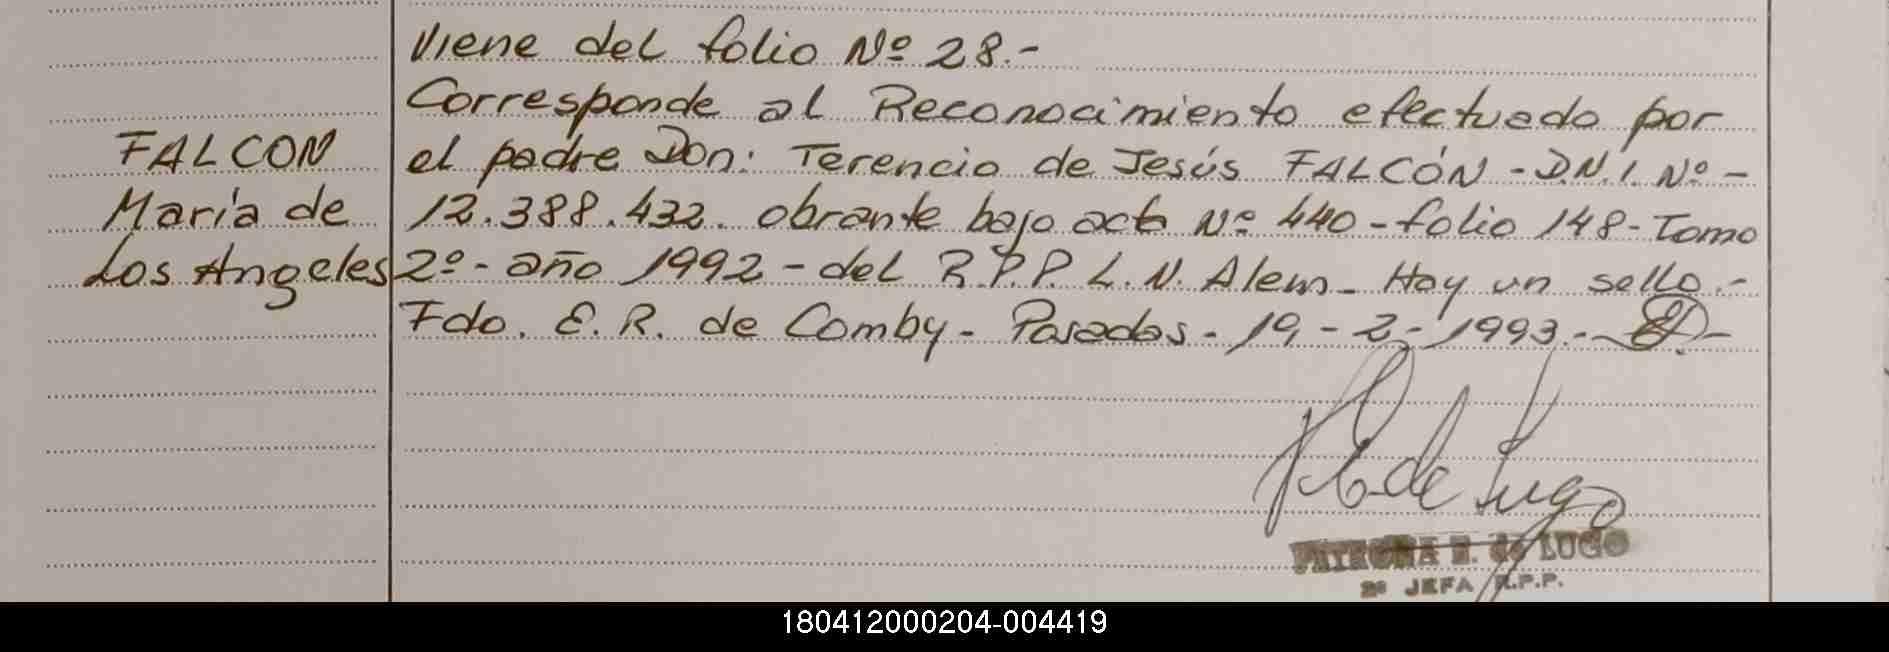 Viene del folio Nº 28.-
Corresponde al Reconocimiento efectuado por
FALCON el padre Don: Terencio de Jesús FALCÓN - D.N.I. Nº -
María de 12.388.432. obrante bajo acta Nº 440 - folio 148 - Tomo
Los Angeles 2º - año 1992 - del R.P.P. L. N. Alem - Hay un sello.-
Fdo. E. R. de Comby - Posadas - 19 - 2 - 1993.-
de Lugo
N. de LUGO
2º JEFA R.P.P.
180412000204-004419